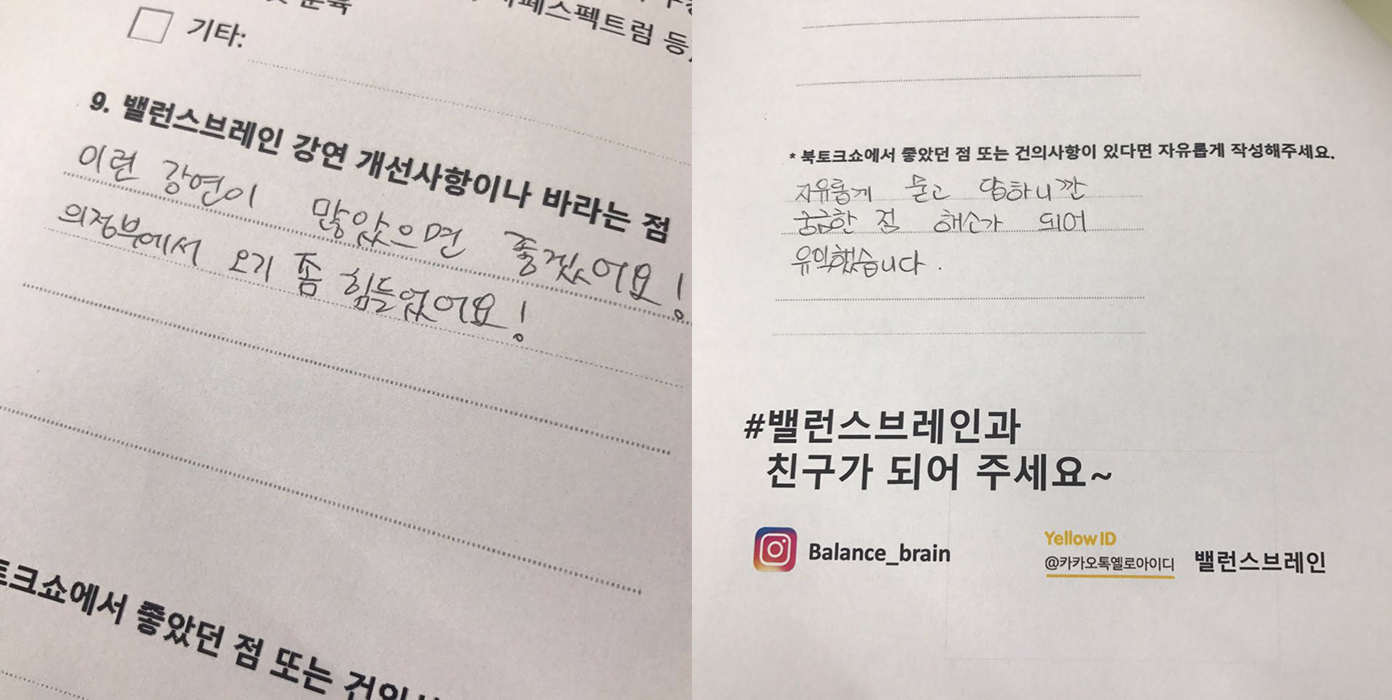 페스펙트럼 등
기타:
9. 밸런스브레인 강연 개선사항이나 바라는 점
이런 강연이 많았으면 좋겠어요!
의정부에서 오기 좀 힘들었어요!
토크쇼에서 좋았던 점 또는 건의사
* 북토크쇼에서 좋았던 점 또는 건의사항이 있다면 자유롭게 작성해주세요.
자유롭게 묻고 답하니깐
궁금한 점 해소가 되어
유익했습니다.
#밸런스브레인과
친구가 되어 주세요~
Balance_brain
Yellow ID
@카카오톡옐로아이디 밸런스브레인